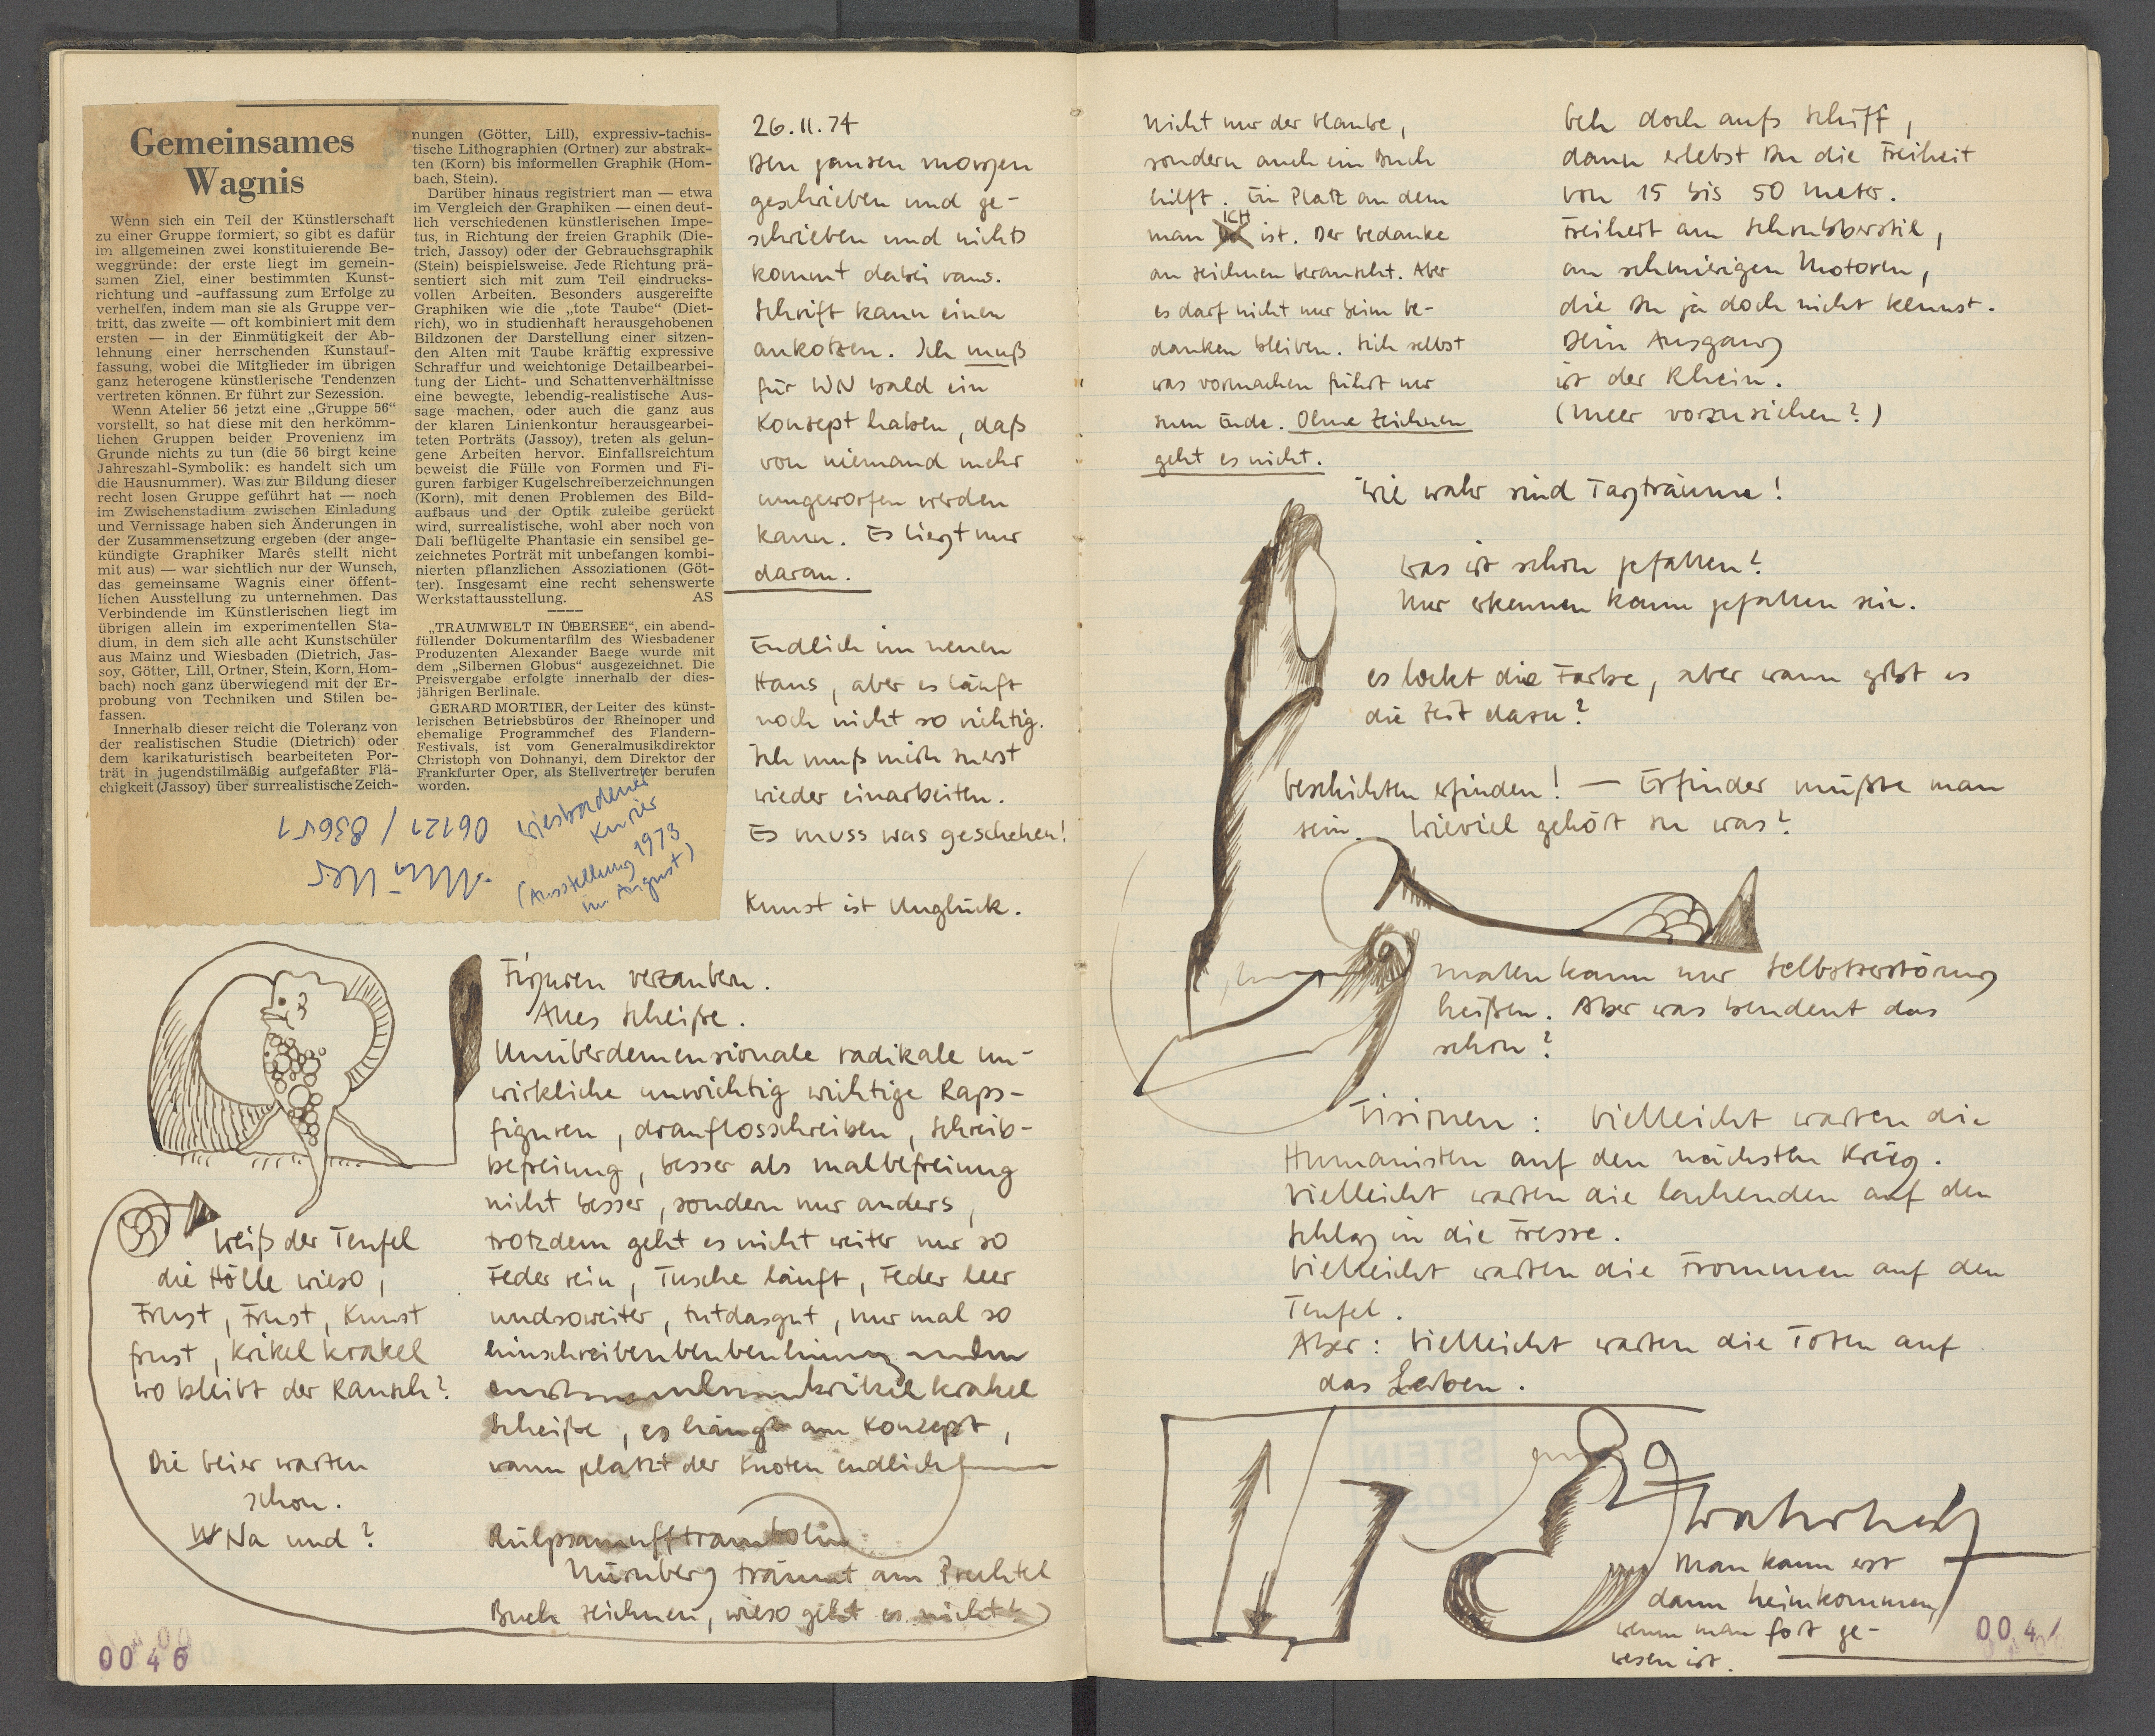 Gemeinsames
Wagnis
Wenn sich ein Teil der Künstlerschaft
zu einer Gruppe formiert, so gibt es dafür
im allgemeinen zwei konstituierende Be-
weggründe: der erste liegt im gemein-
samen Ziel, einer bestimmten Kunst-
richtung und -auffassung zum Erfolge zu
verhelfen, indem man sie als Gruppe ver-
tritt, das zweite — oft kombiniert mit dem
ersten — in der Einmütigkeit der Ab-
lehnung einer herrschenden Kunstauf-
fassung, wobei die Mitglieder im übrigen
ganz heterogene künstlerische Tendenzen
vertreten können. Er führt zur Sezession.
Wenn Atelier 56 jetzt eine „Gruppe 56“
vorstellt, so hat diese mit den herkömm-
lichen Gruppen beider Provenienz im
Grunde nichts zu tun (die 56 birgt keine
Jahreszahl-Symbolik: es handelt sich um
die Hausnummer). Was zur Bildung dieser
recht losen Gruppe geführt hat — noch
im Zwischenstadium zwischen Einladung
und Vernissage haben sich Änderungen in
der Zusammensetzung ergeben (der ange-
kündigte Graphiker Marês stellt nicht
mit aus) — war sichtlich nur der Wunsch,
das gemeinsame Wagnis einer öffent-
lichen Ausstellung zu unternehmen. Das
Verbindende im Künstlerischen liegt im
übrigen allein im experimentellen Sta-
dium, in dem sich alle acht Kunstschüler
aus Mainz und Wiesbaden (Dietrich, Jas-
soy, Götter, Lill, Ortner, Stein, Korn, Hom-
bach) noch ganz überwiegend mit der Er-
probung von Techniken und Stilen be-
fassen.
Innerhalb dieser reicht die Toleranz von
der realistischen Studie (Dietrich) oder
dem karikaturistisch bearbeiteten Por-
trät in jugendstilmäßig aufgefaßter Flä-
chigkeit (Jassoy) über surrealistische Zeich-
nungen (Götter, Lill), expressiv-tachis-
tische Lithographien (Ortner) zur abstrak-
ten (Korn) bis informellen Graphik (Hom-
bach, Stein).
Darüber hinaus registriert man — etwa
im Vergleich der Graphiken — einen deut-
lich verschiedenen künstlerischen Impe-
tus, in Richtung der freien Graphik (Die-
trich, Jassoy) oder der Gebrauchsgraphik
(Stein) beispielsweise. Jede Richtung prä-
sentiert sich mit zum Teil eindrucks-
vollen Arbeiten. Besonders ausgereifte
Graphiken wie die „tote Taube“ (Diet-
rich), wo in studienhaft herausgehobenen
Bildzonen der Darstellung einer sitzen-
den Alten mit Taube kräftig expressive
Schraffur und weichtonige Detailbearbei-
tung der Licht- und Schattenverhältnisse
eine bewegte, lebendig-realistische Aus-
sage machen, oder auch die ganz aus
der klaren Linienkontur herausgearbei-
teten Porträts (Jassoy), treten als gelun-
gene Arbeiten hervor. Einfallsreichtum
beweist die Fülle von Formen und Fi-
guren farbiger Kugelschreiberzeichnungen
(Korn), mit denen Problemen des Bild-
aufbaus und der Optik zuleibe gerückt
wird, surrealistische, wohl aber noch von
Dali beflügelte Phantasie ein sensibel ge-
zeichnetes Porträt mit unbefangen kombi-
nierten pflanzlichen Assoziationen (Göt-
ter). Insgesamt eine recht sehenswerte
Werkstattausstellung. AS
„TRAUMWELT IN ÜBERSEE“, ein abend-
füllender Dokumentarfilm des Wiesbadener
Produzenten Alexander Baege wurde mit
dem „Silbernen Globus“ ausgezeichnet. Die
Preisvergabe erfolgte innerhalb der dies-
jährigen Berlinale.
GERARD MORTIER, der Leiter des künst-
lerischen Betriebsbüros der Rheinoper und
ehemalige Programmchef des Flandern-
Festivals, ist vom Generalmusikdirektor
Christoph von Dohnanyi, dem Direktor der
Frankfurter Oper, als Stellvertreter berufen
worden.
Wiesbadener
Kurier
(Ausstellung 1973
im August)
06121 / 83651
26.11.74
Den ganzen morgen
geschrieben und ge-
schrieben und nichts
kommt dabei raus.
Schrift kann einen
ankotzen. Ich muß
für WN bald ein
Konzept haben, daß
von niemand mehr
umgeworfen werden
kann. Es liegt nur
daran.
Endlich im neuen
Haus, aber es läuft
noch nicht so richtig.
Ich muß mich zuerst
wieder einarbeiten.
Es muss was geschehen!
Kunst ist Unglück.
Figuren verzaubern.
Alles Scheiße.
Unüberdemensionale radikale un-
wirkliche unwichtig wichtige Raps-
figuren, drauflosschreiben, Schreib-
befreiung, besser als malbefreiung
nicht besser, sondern nur anders,
trotzdem geht es nicht weiter nur so
Feder rein, Tusche läuft, Feder leer
undsoweiter, tutdasgut, nur mal so
hinschreibenbenben
krikelkrakel
Scheiße, es hängt am Konzept,
wann platzt der Knoten endlich
Nürnberg träumt am
Buch zeichnen, wieso geht es nicht?
Weiß der Teufel
die Hölle wieso,
Frust, Frust, Kunst
frust, Krikelkrakel
wo bleibt der Rausch?
Die Geier warten
schon.
Na und?
0046
Nicht nur der Glaube,
sondern auch ein Buch
hilft. Ein Platz an dem
man ICH ist. Der Gedanke
an zeichnen berauscht. Aber
es darf nicht nur beim Ge-
danken bleiben. Sich selbst
was vormachen führt nur
zum Ende. Ohne Zeichnen
geht es nicht.
Geh doch aufs Schiff,
dann erlebst Du die Freiheit
von 15 bis 50 Meter.
Freiheit am Schrubberstil,
an schmierigen Motoren,
die Du ja doch nicht kennst.
Dein Ausgang
ist der Rhein.
(Meer vorzuziehen?)
Wie wahr sind Tagträume!
was ist schon gefallen?
Nur erkennen kann gefallen sein.
es lockt die Farbe, aber wann gibt es
die Zeit dazu?
Geschichten erfinden! — Erfinder müßte man
sein. Wieviel gehört zu was?
malen kann nur Selbstzerstörung
heißen. Aber was bendeut das
schon?
Visionen: Vielleicht warten die
Humanisten auf den nächsten Krieg.
Vielleicht warten die lachenden auf den
Schlag in die Fresse.
Vielleicht warten die Frommen auf den
Teufel.
Aber: Vielleicht warten die Toten auf
das Leben.
Wahrheit
Man kann erst
dann heimkommen,
wenn man fort ge-
wesen ist.
004